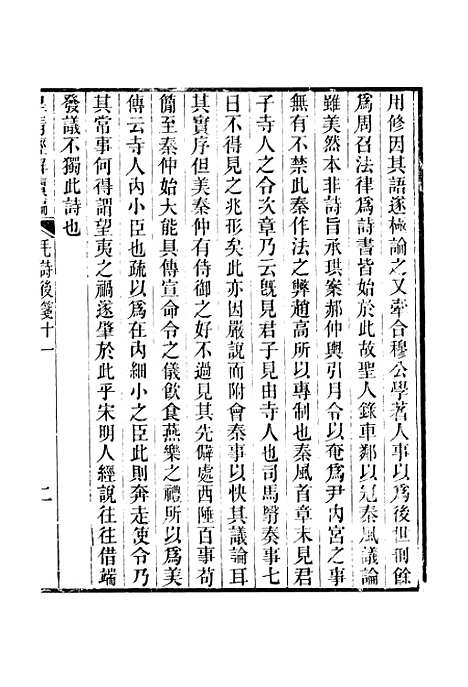 用修因其語遂極論之又牽合穆公學著人事以爲後世刑餘
爲周召法律爲詩書皆始於此故聖人錄車鄰以冠秦風議論
雖美然本非詩旨承珙案郝仲輿引月令以奄爲尹內宮之事
無有非寺人之令次章乃云旣見君子見由寺人也司馬
子寺人之令次章乃云旣見君子見由寺人也司馬彎奏事七
日不得見之兆形矣此亦因嚴說而附會秦事以快其議論耳
其實序但美秦仲始有侍御之不過見其先僻處西陲百事苟
簡至秦仲始大能具傳宣命令之儀飲食燕樂之禮所以爲美
傳云寺人內小臣也疏以爲在內細小之臣此則奔走使令乃
其常事何得謂望夷之禍遂肇於此乎宋明人經說往往借端
發議不獨此詩也
皇淸經解續編
毛詩後箋十一
二